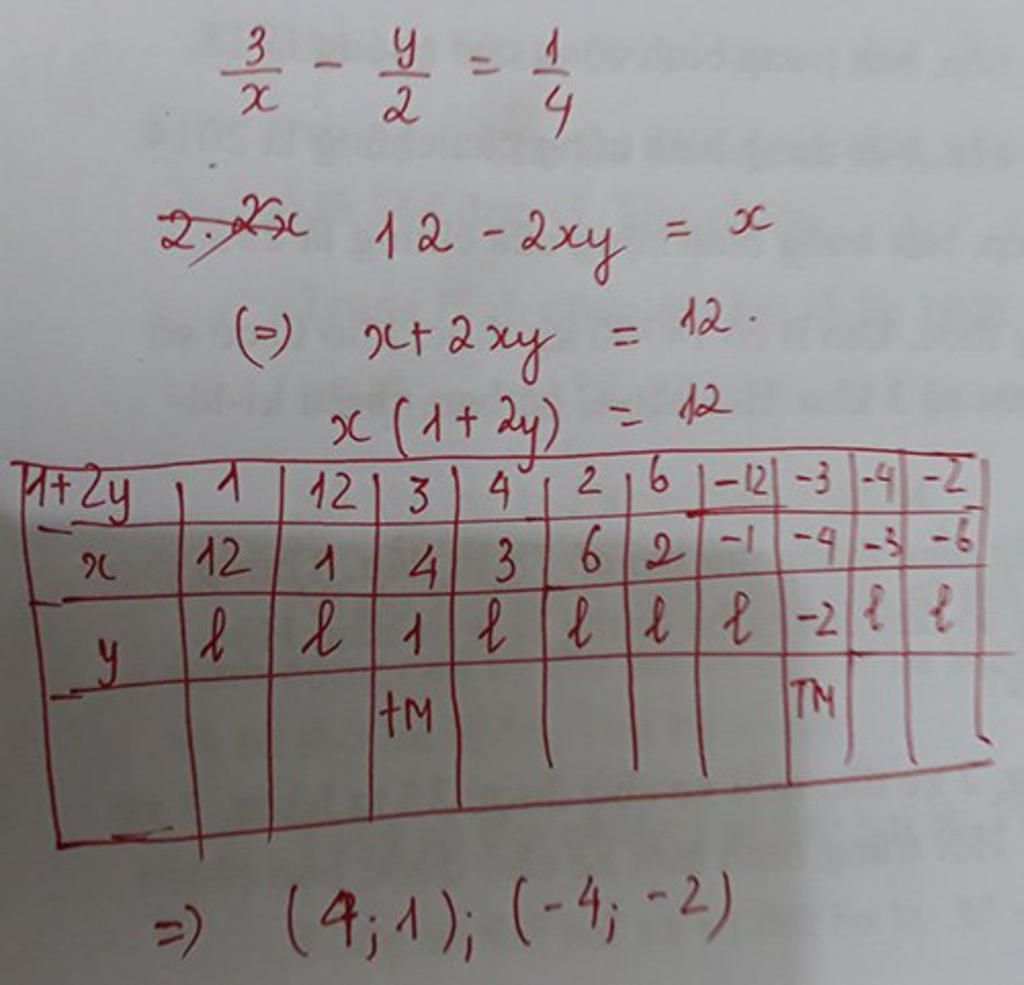 3/x - y/2 = 1/4
2. 2x 12 - 2xy = x
(=) x + 2xy = 12.
x (1 + 2y) = 12
1+2y 1 12 3 4 2 6 -12 -3 -4 -2
x 12 1 4 3 6 2 -1 -4 -3 -6
y l l 1 l l l l -2 l l
tM TM
=) (4; 1); (-4; -2)